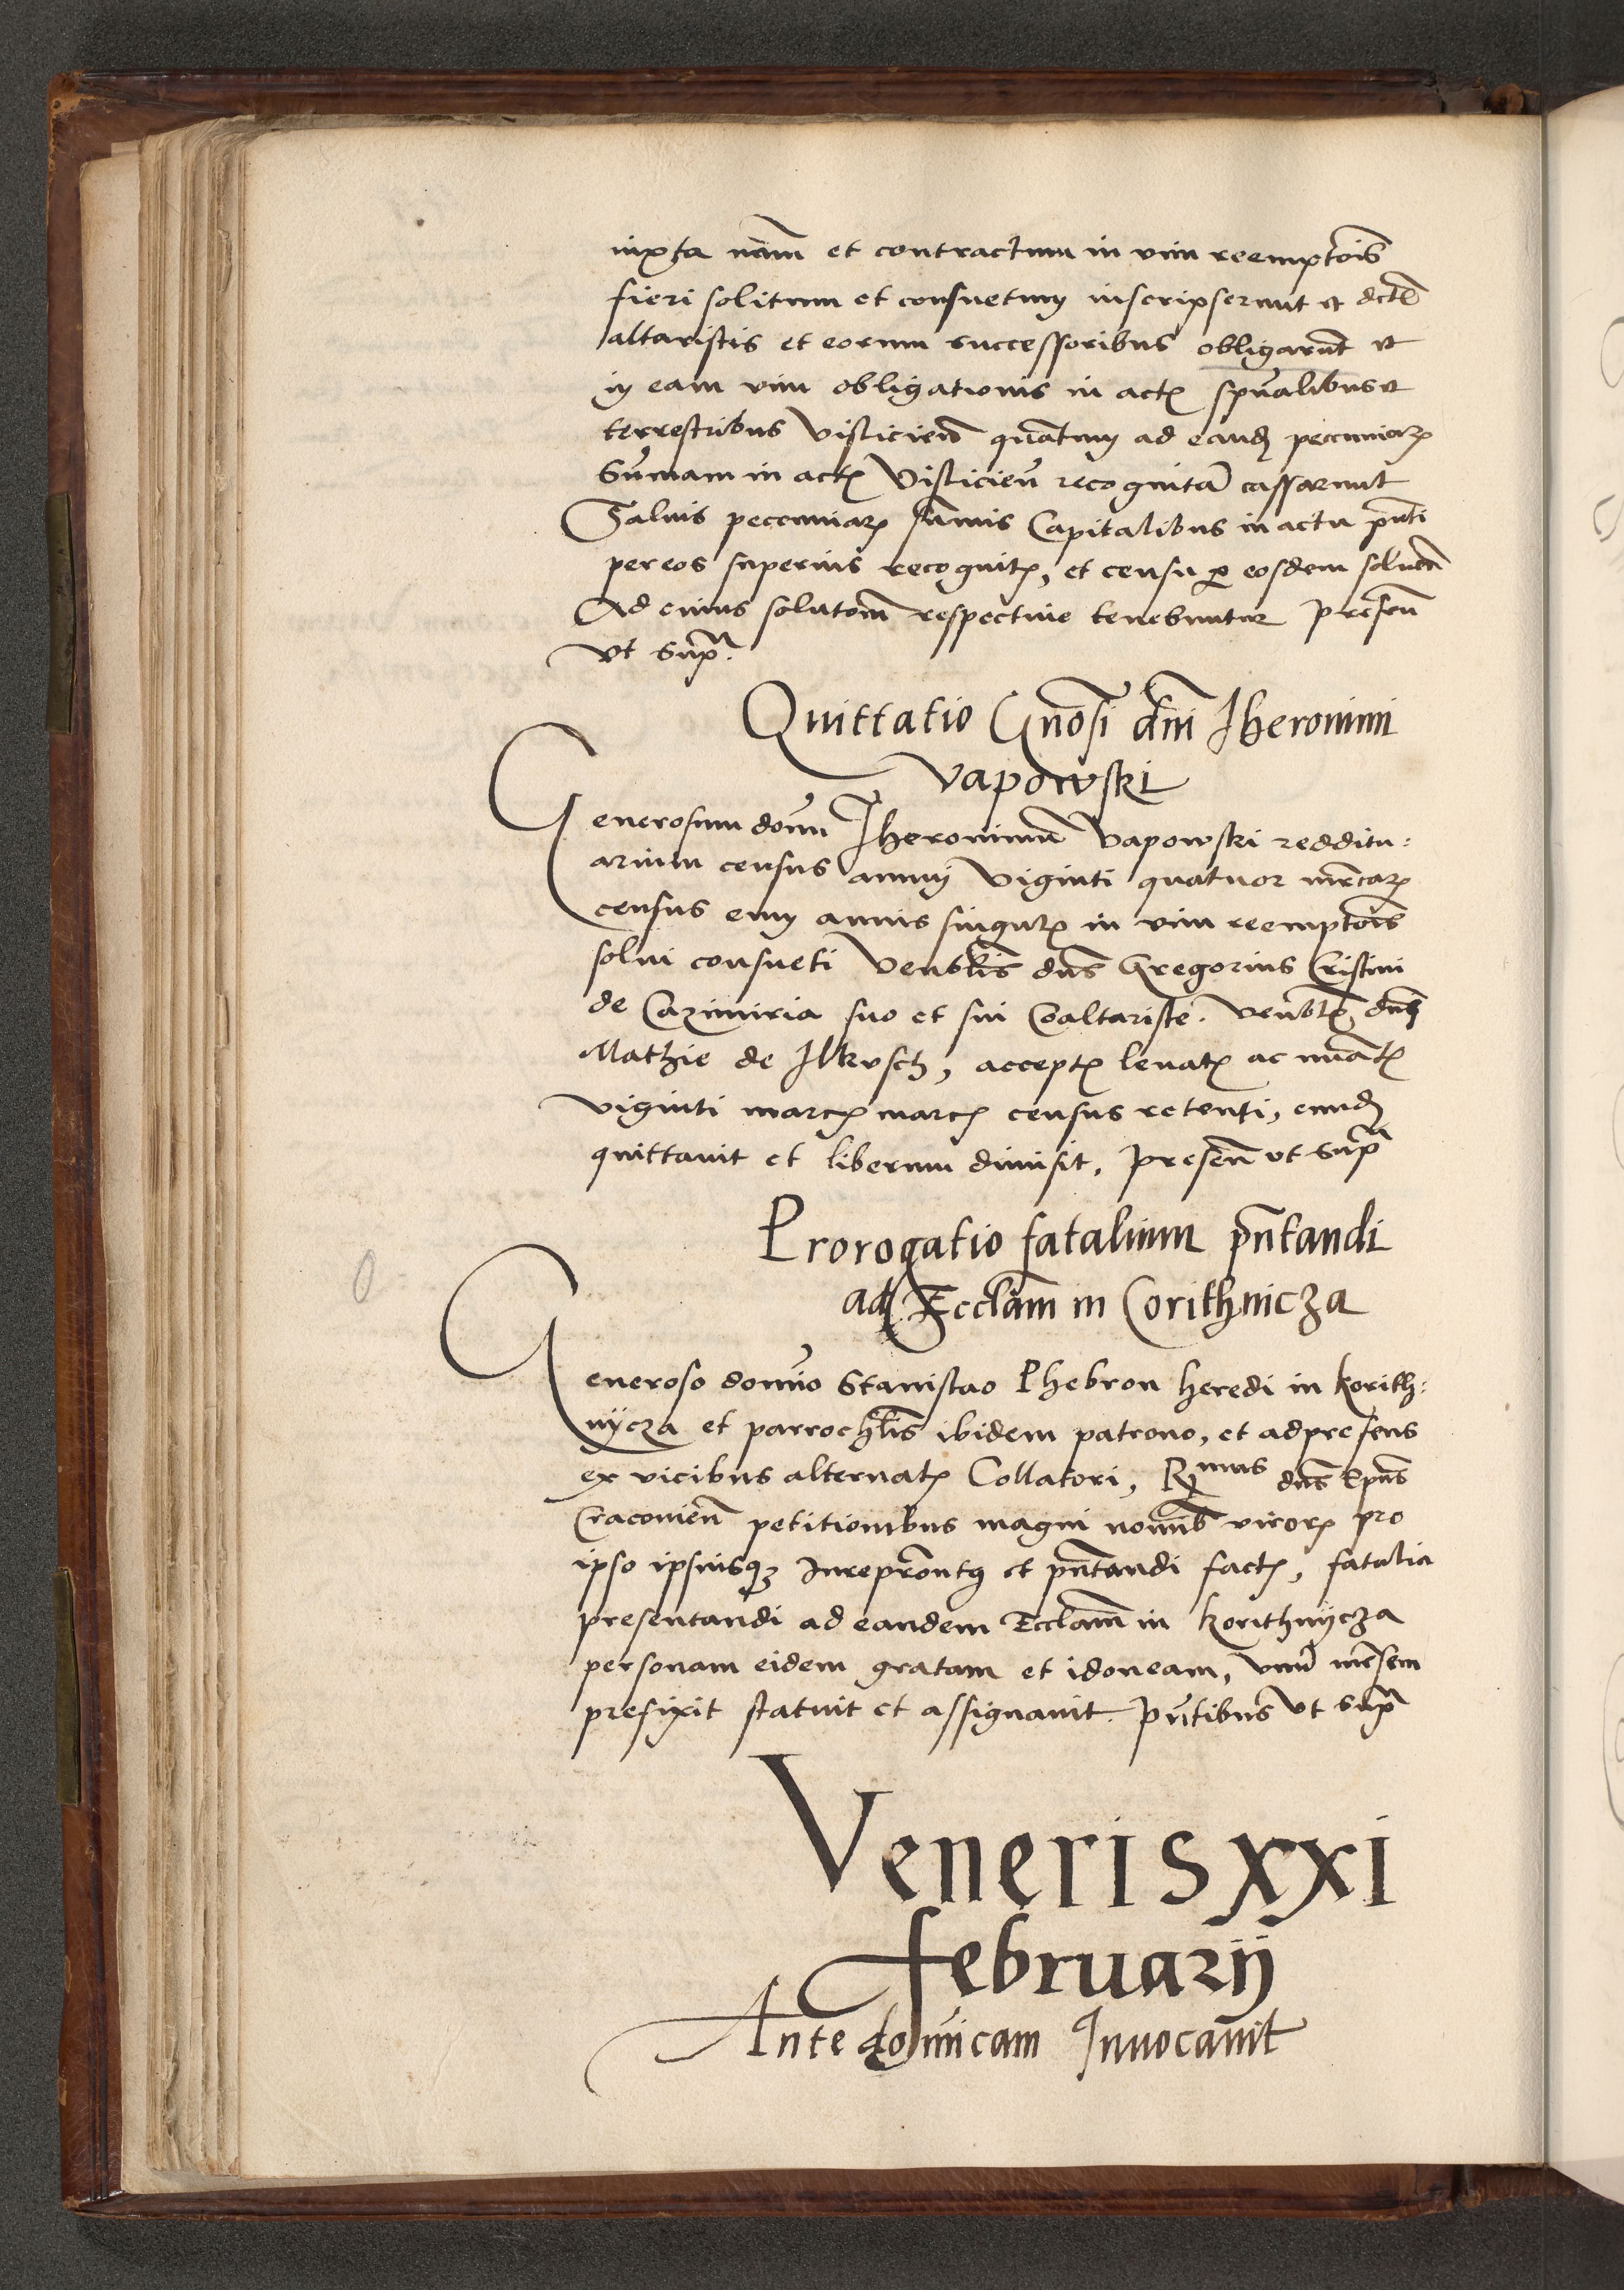 iuxta nãm et contractum in vim reemptõis
fieri solitum et consuetum inscripserunt et dctis
altaristis et eorum successoribus obligarũt et
in eam vim obligationis in actꝭ spũalibus et
terrestribus Visliciẽn quãtum ad eand pecuniarꝝ
Sũmam in actꝭ Visliciẽn recognitã cassarunt
Salvis pecuniarꝝ sũmis Capitalibus in actu pñti
per eos superius recognitꝭ, et censu ꝑ eosdem solvẽn
Ad cuius solutõem respective tenebuntur Presẽn
Vt Supᵃ.
Quittatio Gñosi dñi Iheronimi
Vapowski
Generosum domĩn Iheronimũ Vapowski redditu:
arium census annui Viginti quatuor mrcarꝝ
census cum annis singulꝭ in vim reemptõis
solvi consueti Venblis dñs Gregorius Cristini
de Cazimiria suo et sui Coaltariste. venblꝭ dñi
Mathie de Ilkusch, acceptꝭ levatꝭ ac nũatꝭ
viginti marcꝭ marcꝭ census retenti, eund
quittavit et liberum dimisit, Presẽn vt Supᵃ
Prorogatio fatalium pñtandi
ad Eccłam in Corithnicza
Generoso domĩo Stanislao Phebron heredi in Korith:
nÿcza et parrochlis ibidem patrono, et ad presens
ex vicibus alternatꝭ Collatori, Rmus dñs Epũs
Cracoviẽn petitionibus magni nomĩs virorꝝ pro
ipso ipsiusqꝫ et pñtandi factꝭ, fatalia
presentandi ad eandem Eccłam in Korithnÿcza
personam eidem gratam et idoneam, vnũ mẽsem
prefixit statuit et assignavit. Pñtibus Vt Supᵃ
Veneris xxi
februarij
Ante domĩcam Invocavit